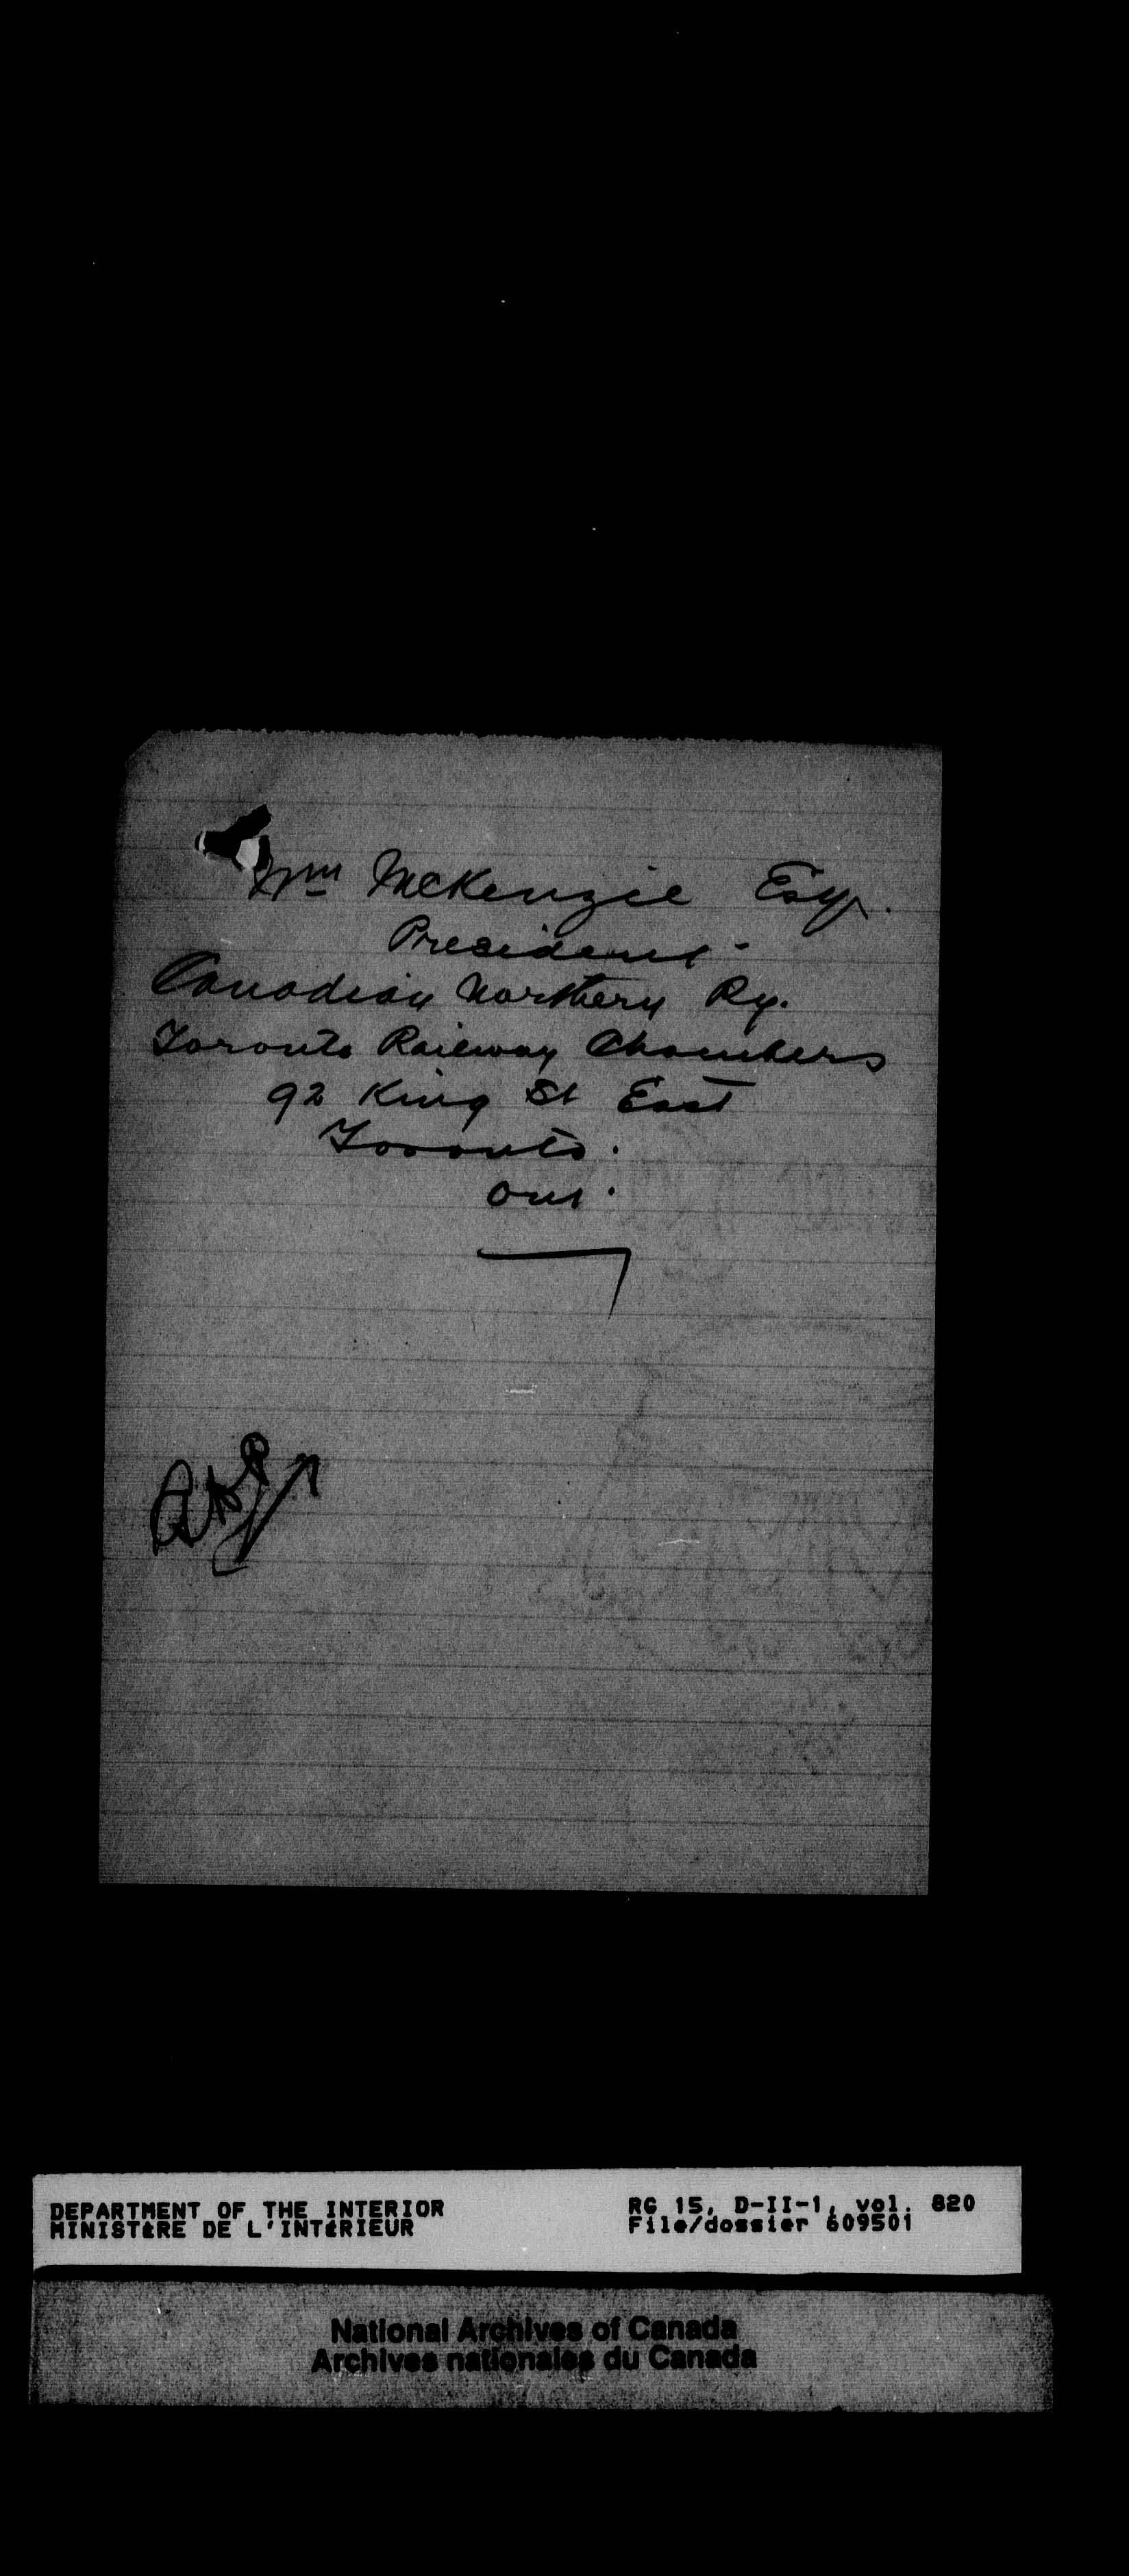 Wm McKenzie Esq.
President
Canadian Northern Ry.
Toronto Railway Chambers
92 King St East
Toronto.
Ont.
DEPARTMENT OF THE INTERIOR
MINISTÈRE DE L'INTÉRIEUR
RG 15, D-II-1, vol. 820
File/dossier 609501
National Archives of Canada
Archives nationales du Canada